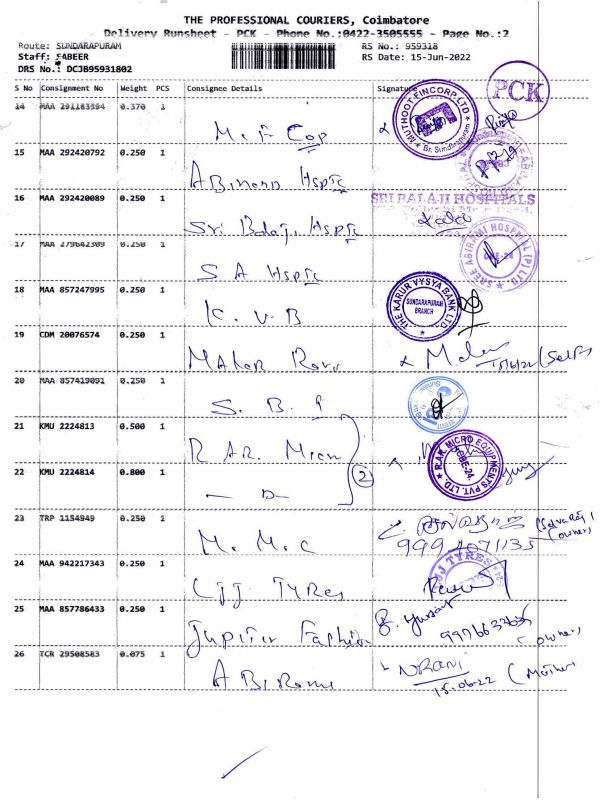 THE PROFESSIONAL COURIERS, Coimbatore
Delivery Runsheet - PCK - Phone No.:0422-3505555 - Page No.:2
Route: SUNDARAPURAM RS No.: 959318
Staff: SABEER RS Date: 15-Jun-2022
DRS No.: DCJB95931802
S No Consignment No Weight PCS Consignee Details Signature
PCK
14 MAA 291183594 0.370 1
M. F Cop
MUTHOOT FINCORP LTD
Br. Sundarapuram
15 MAA 292420792 0.250 1
16 MAA 292420089 0.250 1
SRI BALAJI HOSPITALS
Sri Balaji Hspt
17 MAA 279642309 0.250 1
S A Hspt
SREE ABIRAMI HOSPITAL (P) LTD.
18 MAA 857247995 0.250 1
K. V B
THE KARUR VYSYA BANK LTD.
SUNDARAPURAM
BRANCH
19 CDM 20076574 0.250 1
15/6/22 (Self)
20 MAA 857419091 0.250 1
S. B. I
21 KMU 2224813 0.500 1
R AR. Micro
2
R.A.R. MICRO EQUIPMENTS PVT. LTD.
CBE-24.
22 KMU 2224814 0.800 1
— D —
23 TRP 1154949 0.250 1
M. M. C
(Selvaraj)
(owner)
24 MAA 942217343 0.250 1
CJJ. TYRES
JJ TYRES
25 MAA 857786433 0.250 1
Jupiter Fashion
(owner)
26 TCR 29508583 0.075 1
ABIRami
NORANI
15.06.22 (Mother